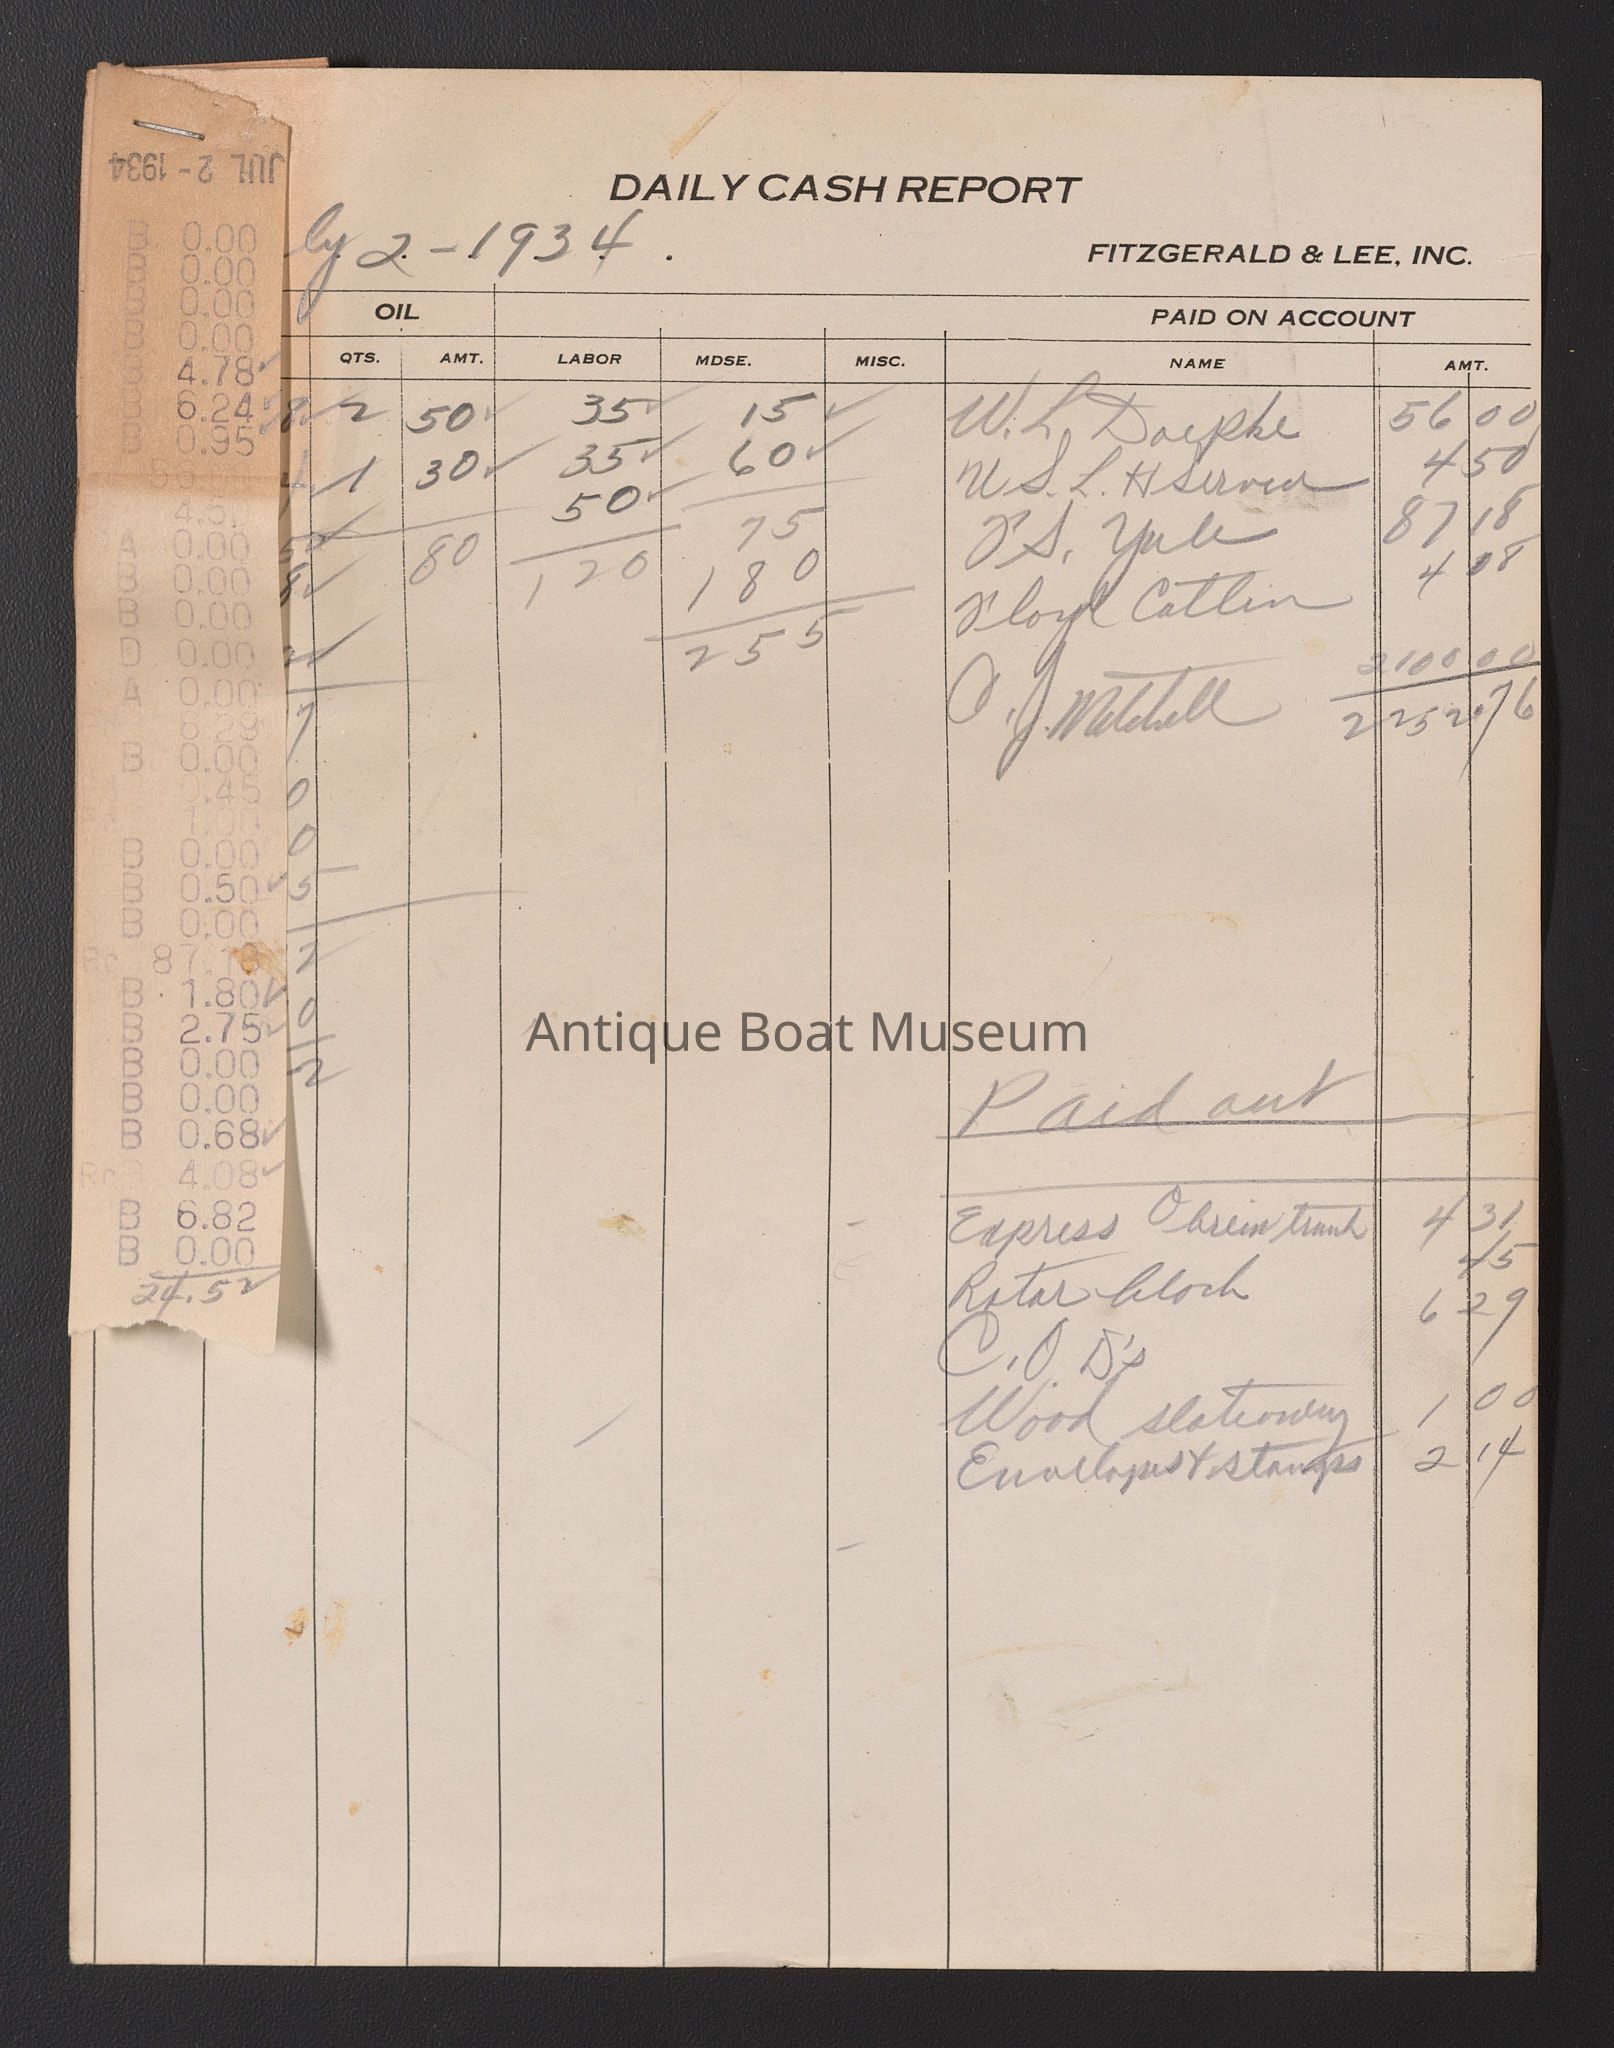 JUL 2 - 1934
B 0.00
B 0.00
B 0.00
B 0.00
4.78
6.24
B 0.95
A 0.00
B 0.00
B 0.00
D 0.00
A 0.00
6.29
B 0.00
0.45
1.00
B 0.00
B 0.50
B 0.00
Rc 87.18
B 1.80
B 2.75
B 0.00
B 0.00
B 0.68
Rc 4.08
B 6.82
B 0.00
24.52
DAILY CASH REPORT
ly 2 - 1934.
FITZGERALD & LEE, INC.
OIL PAID ON ACCOUNT
QTS. AMT. LABOR MDSE. MISC. NAME AMT.
2 50 35 15 W. L. Doepke 56 00
1 30 35 60 U S. L. H Service 4 50
50 75 F S. Yule 87 18
80 120 180 Floyd Catlin 4 08
255 C. J. Mitchell 2100 00
2252.76
7
0
0
5
2
0
2
Antique Boat Museum
Paid out
Express Obrein trunk 4 31
Rotar block 45
C. O. D's 6 29
Wood stationery 1 00
Envelopes & stamps 2 14